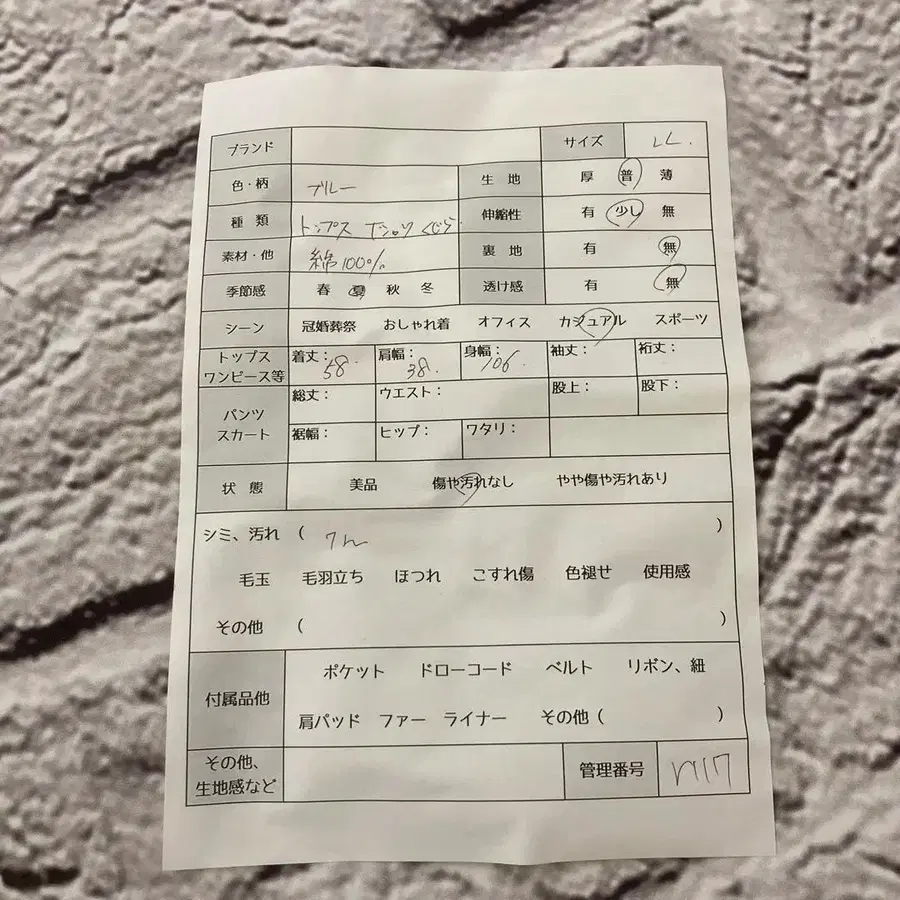 ブランド サイズ LL.
色・柄 ブルー 生地 厚 普 薄
種類 トップス Tシャツ くじら 伸縮性 有 少し 無
素材・他 綿100% 裏地 有 無
季節感 春 夏 秋 冬 透け感 有 無
シーン 冠婚葬祭 おしゃれ着 オフィス カジュアル スポーツ
トップス ワンピース等 着丈：58. 肩幅：38. 身幅：106. 袖丈： 裄丈：
パンツ スカート 総丈： ウエスト： 股上： 股下：
裾幅： ヒップ： ワタリ：
状態 美品 傷や汚れなし やや傷や汚れあり
シミ、汚れ （ ）
毛玉 毛羽立ち ほつれ こすれ傷 色褪せ 使用感
その他 （ ）
付属品他 ポケット ドローコード ベルト リボン、紐
肩パッド ファー ライナー その他（ ）
その他、 生地感など 管理番号